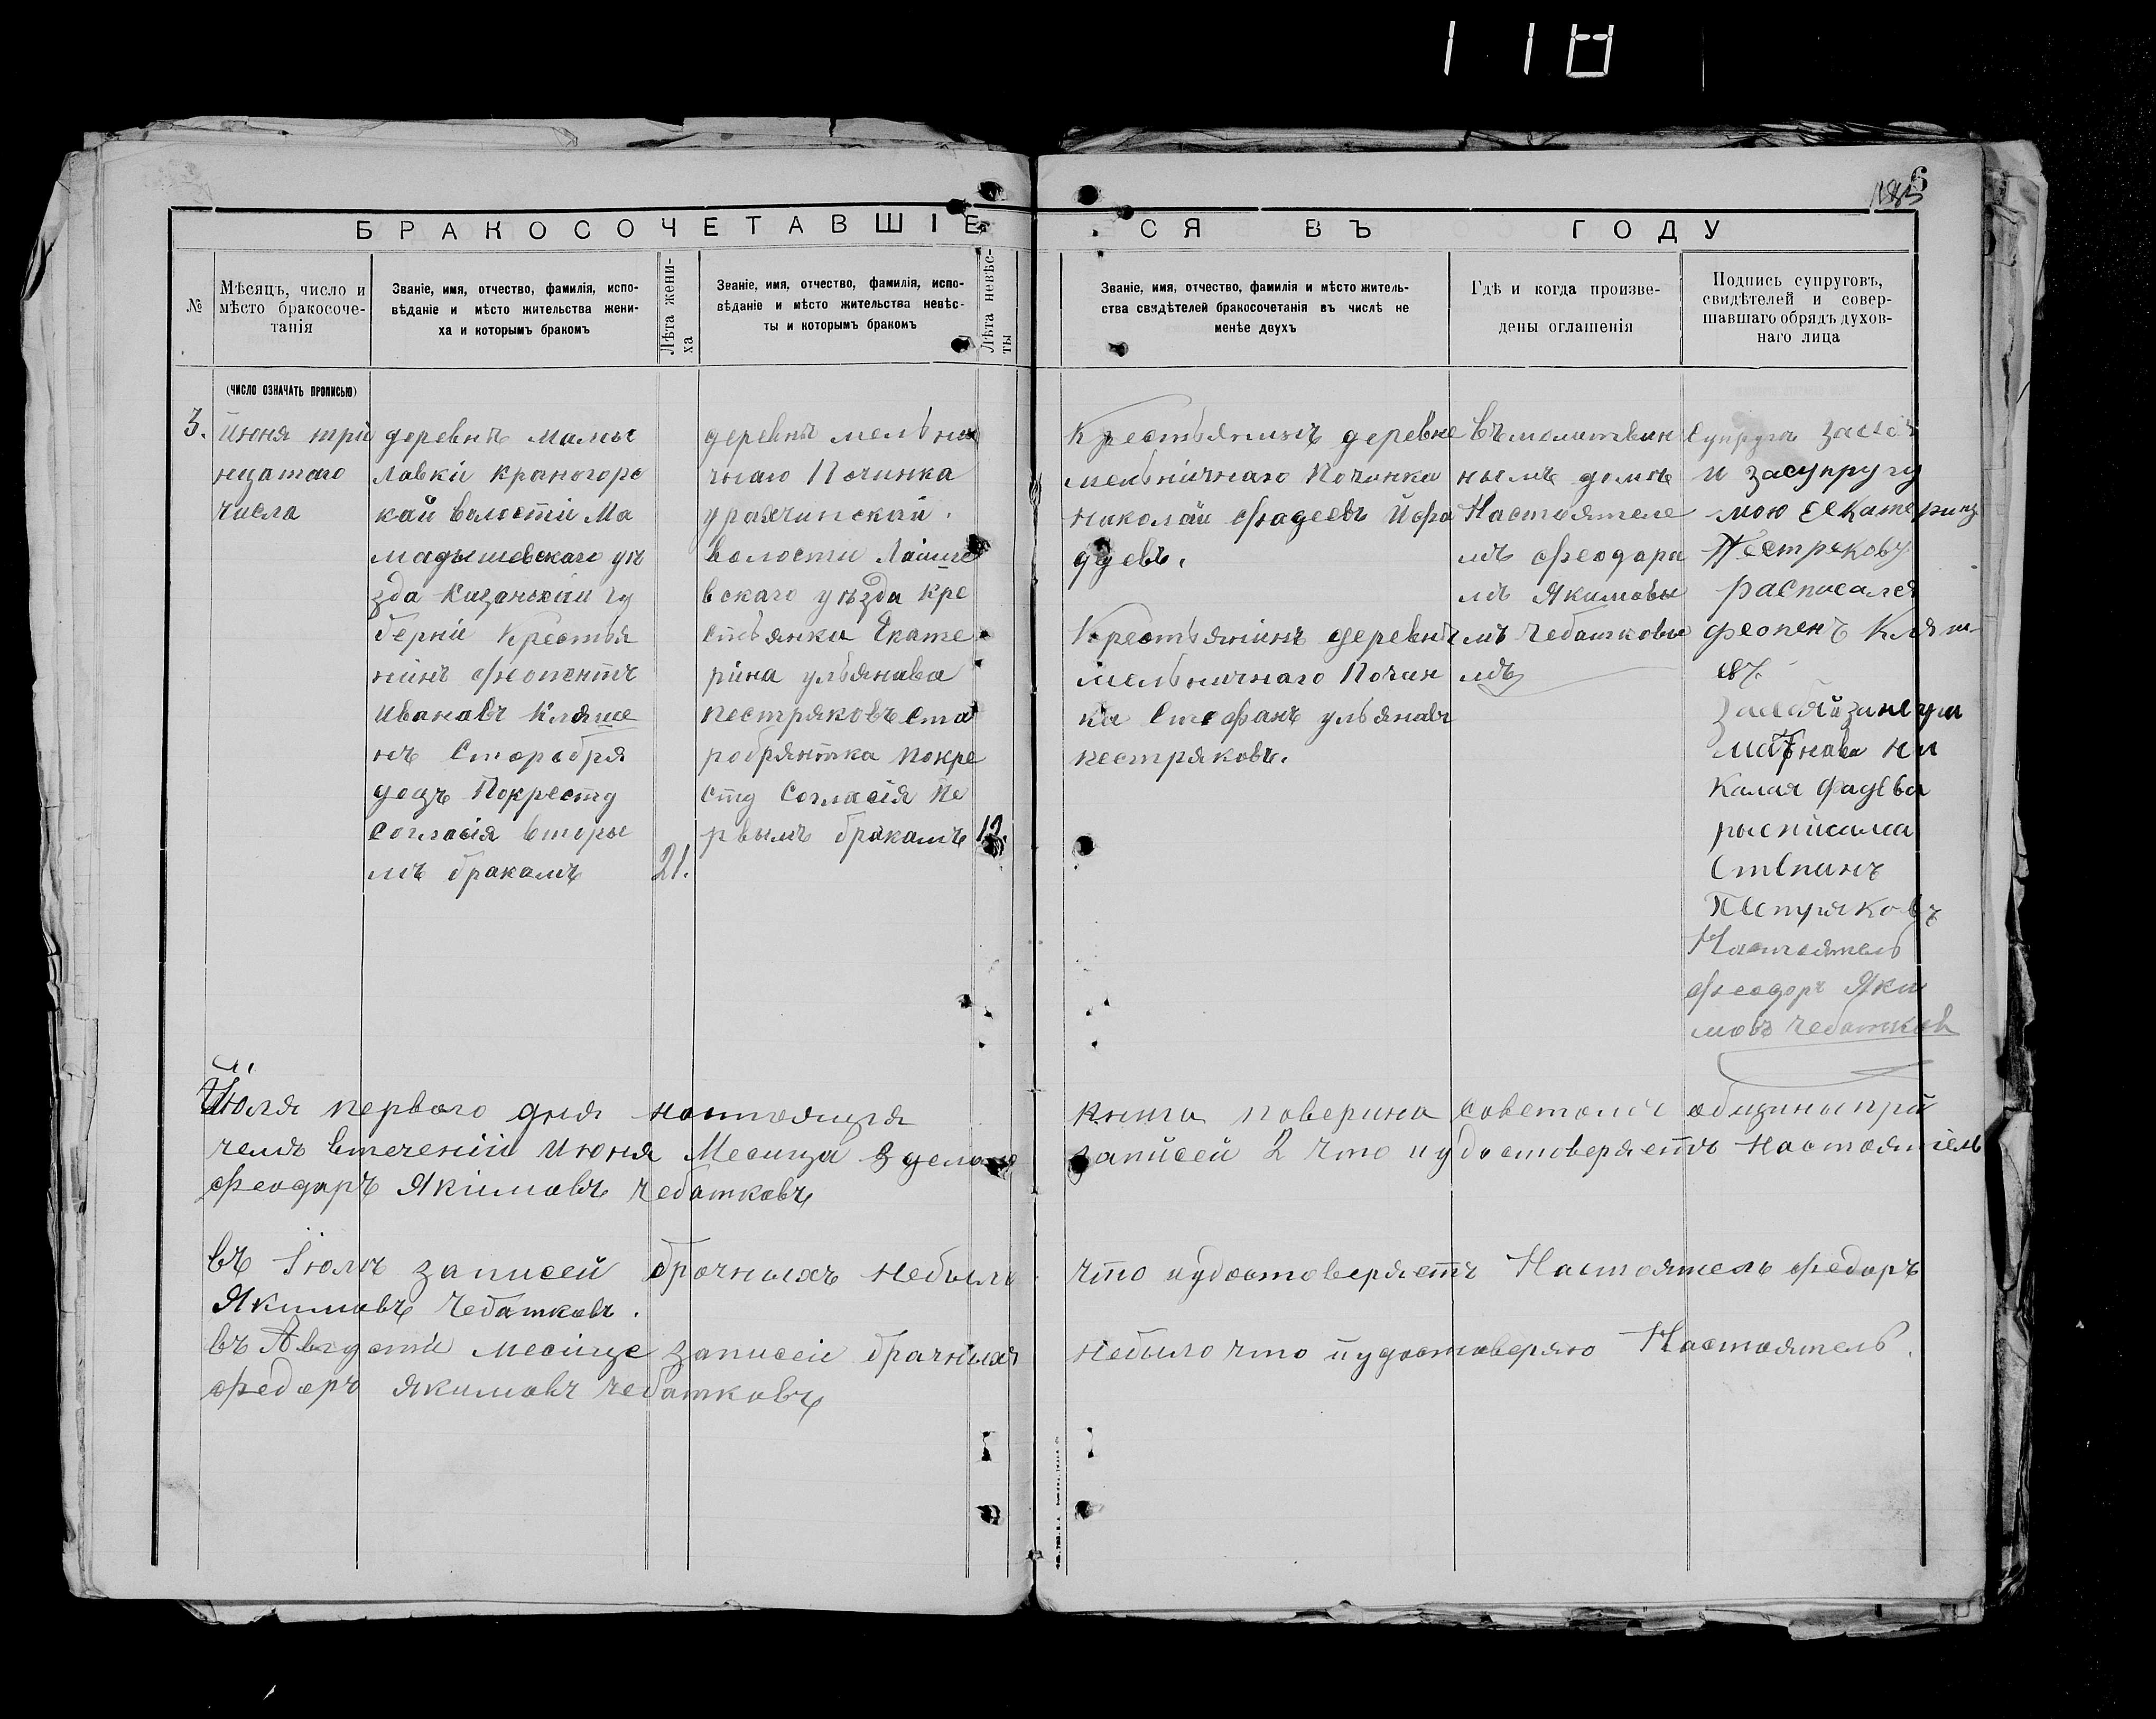 118
6
БРАКОСОЧЕТАВШІЕ
СЯ ВЪ ГОДУ
№
Мѣсяцъ, число и
мѣсто бракосоче-
танія
Званіе, имя, отчество, фамилія, испо-
вѣданіе и мѣсто жительства жени-
ха и которымъ бракомъ
Лѣта жени-
ха
Званіе, имя, отчество, фамилія, испо-
вѣданіе и мѣсто жительства невѣс-
ты и которымъ бракомъ
Лѣта невѣс-
ты
Званіе, имя, отчество, фамилія и мѣсто житель-
ства свидѣтелей бракосочетанія въ числѣ не
менѣе двухъ
Гдѣ и когда произве-
дены оглашенія
Подпись супруговъ,
свидѣтелей и совер-
шавшаго обрядъ духов-
наго лица
(ЧИСЛО ОЗНАЧАТЬ ПРОПИСЬЮ)
3.
Июня три
нцатаго
числа
деревнѣ Мамы
лавки Красногорс
кай валости Ма
мадышевскаго уѣ
зда Казанскии гу
берніи Крестья
нинъ Феопентъ
Ивановъ Кляше
нъ Старобря
децъ Покресту
согласія вторы
мъ бракамъ
21.
деревнѣ мельни
чнаго Починка
урахчинскай
волости Лаише
вскаго уѣзда Кре
стьянка Екате
рина ульянава
пестряковъ ста
робрянтка покре
сту Согласія пе
рвымъ бракамъ
Крестьянинъ деревне
мельничнаго Починка
николай Фадеевъ
ддевъ.
Крестьянинъ деревнѣ
мельничнаго Почин
ка Стефанъ ульянавъ
пестряковъ.
въмолитвин
нымъ домѣ
Настоятеле
мъ Феодора
мъ Якимовы
мъ Чебатковы
мъ
Супругъ засебя
и засупругу
мою Екатерину
Пестрякову
расписался
феопенъ Кляш-
евъ
Калая фадева
расписалса
Степанъ
Пестряковъ
Настоятель
Феодоръ Яки
мовъ Чебатков
Июля первого дня настоящея
книга поверина саветомъ общины при
чемъ втечении июня Месица зделана
записей 2 что иудостоверяетъ Настоятель
Феодаръ Якимавъ Чебатковъ
въ Іюлѣ записей брачныхъ небыло
что иудостоверяетъ Настоятель Федаръ
Якимовъ Чебатковъ.
въ Августи месице записеи брачныхъ
небыло что иудостоверяю Настоятель.
Федоръ Якимовъ Чебатковъ